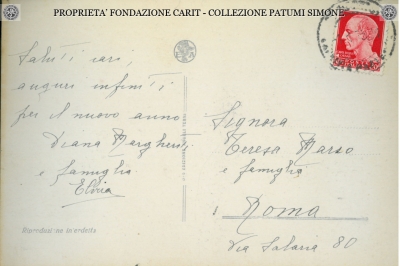 PROPRIETA' FONDAZIONE CARIT - COLLEZIONE PATUMI SIMONE
Saluti cari,
auguri infiniti
per il nuovo anno
Diana Margheriti
e famiglia
Elvia
Signora
Teresa Marzo
e famiglia
Roma
Via Salaria 80
Riproduzione interdetta